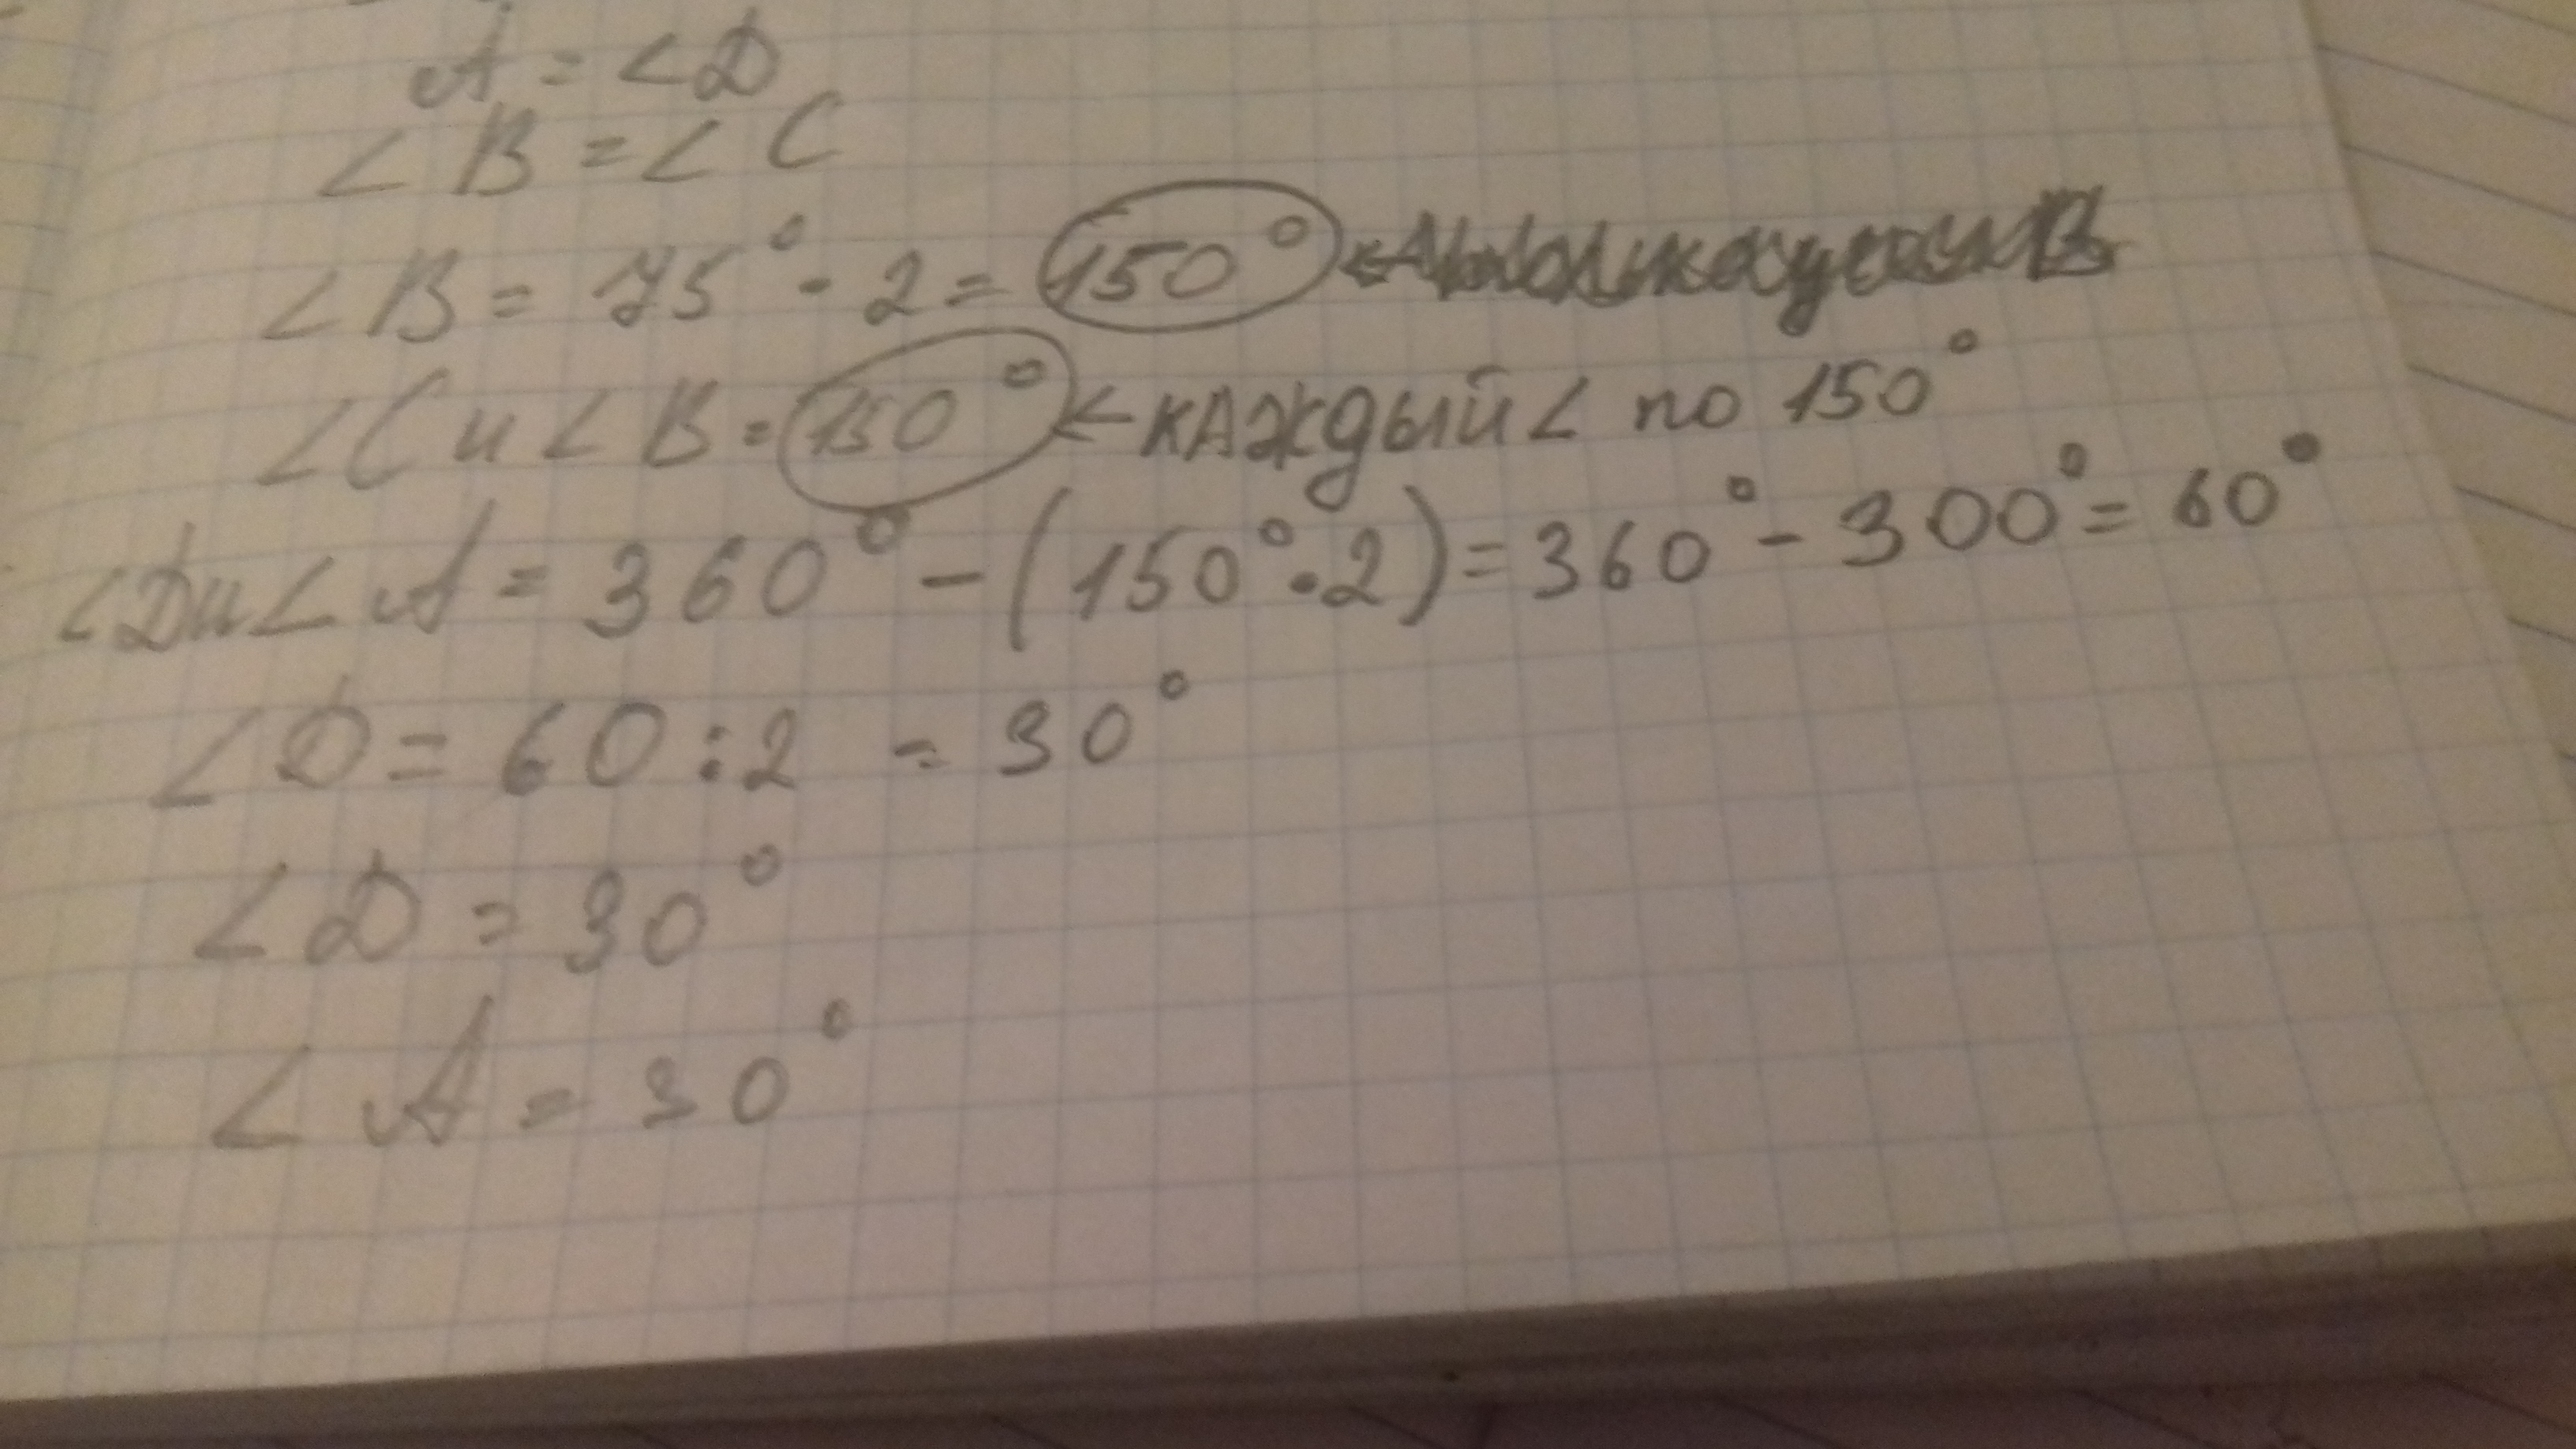 A = ∠D
∠B = ∠C
∠B = 75° · 2 = 150° ←
∠C и ∠B = 150° ← каждый ∠ по 150°
∠D и ∠A = 360° - (150° · 2) = 360° - 300° = 60°
∠D = 60 : 2 = 30°
∠D = 30°
∠A = 30°